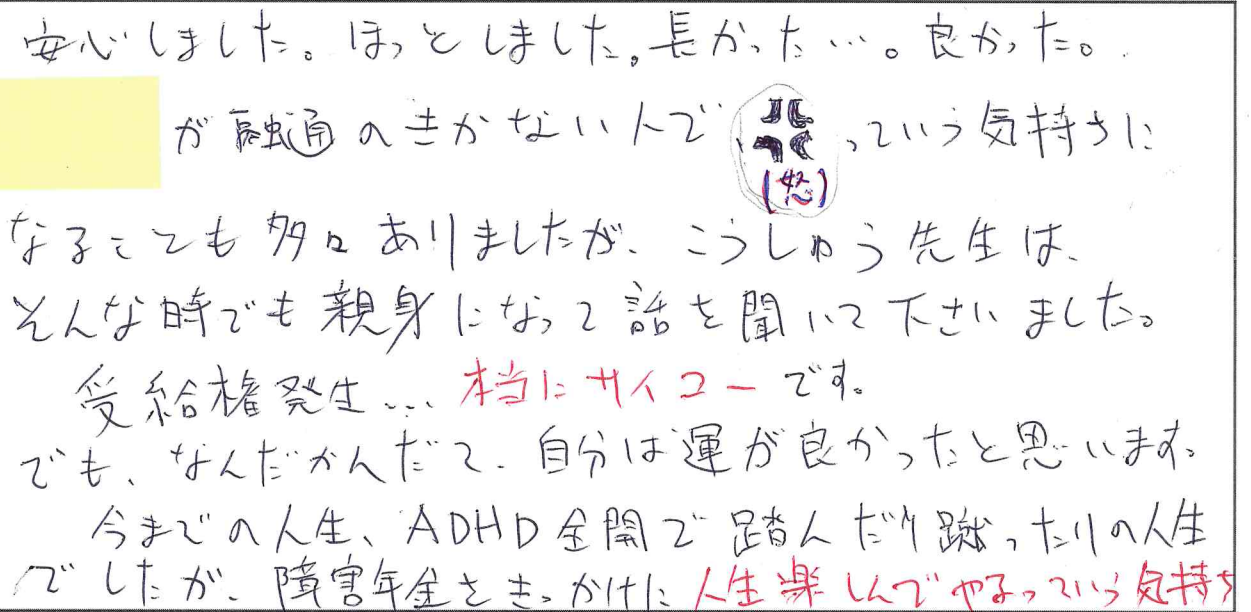 安心しました。ほっとしました。長かった…。良かった。
が融通のきかない人で、っていう気持ちに
(怒)
なることも多々ありましたが、こうしゅう先生は、
そんな時でも親身になって話を聞いて下さいました。
受給権発生... 本当にサイコーです。
でも、なんだかんだで、自分は運が良かったと思います。
今までの人生、ADHD全開で踏んだり蹴ったりの人生
でしたが、障害年金をきっかけに人生楽しんでやるっていう気持ち